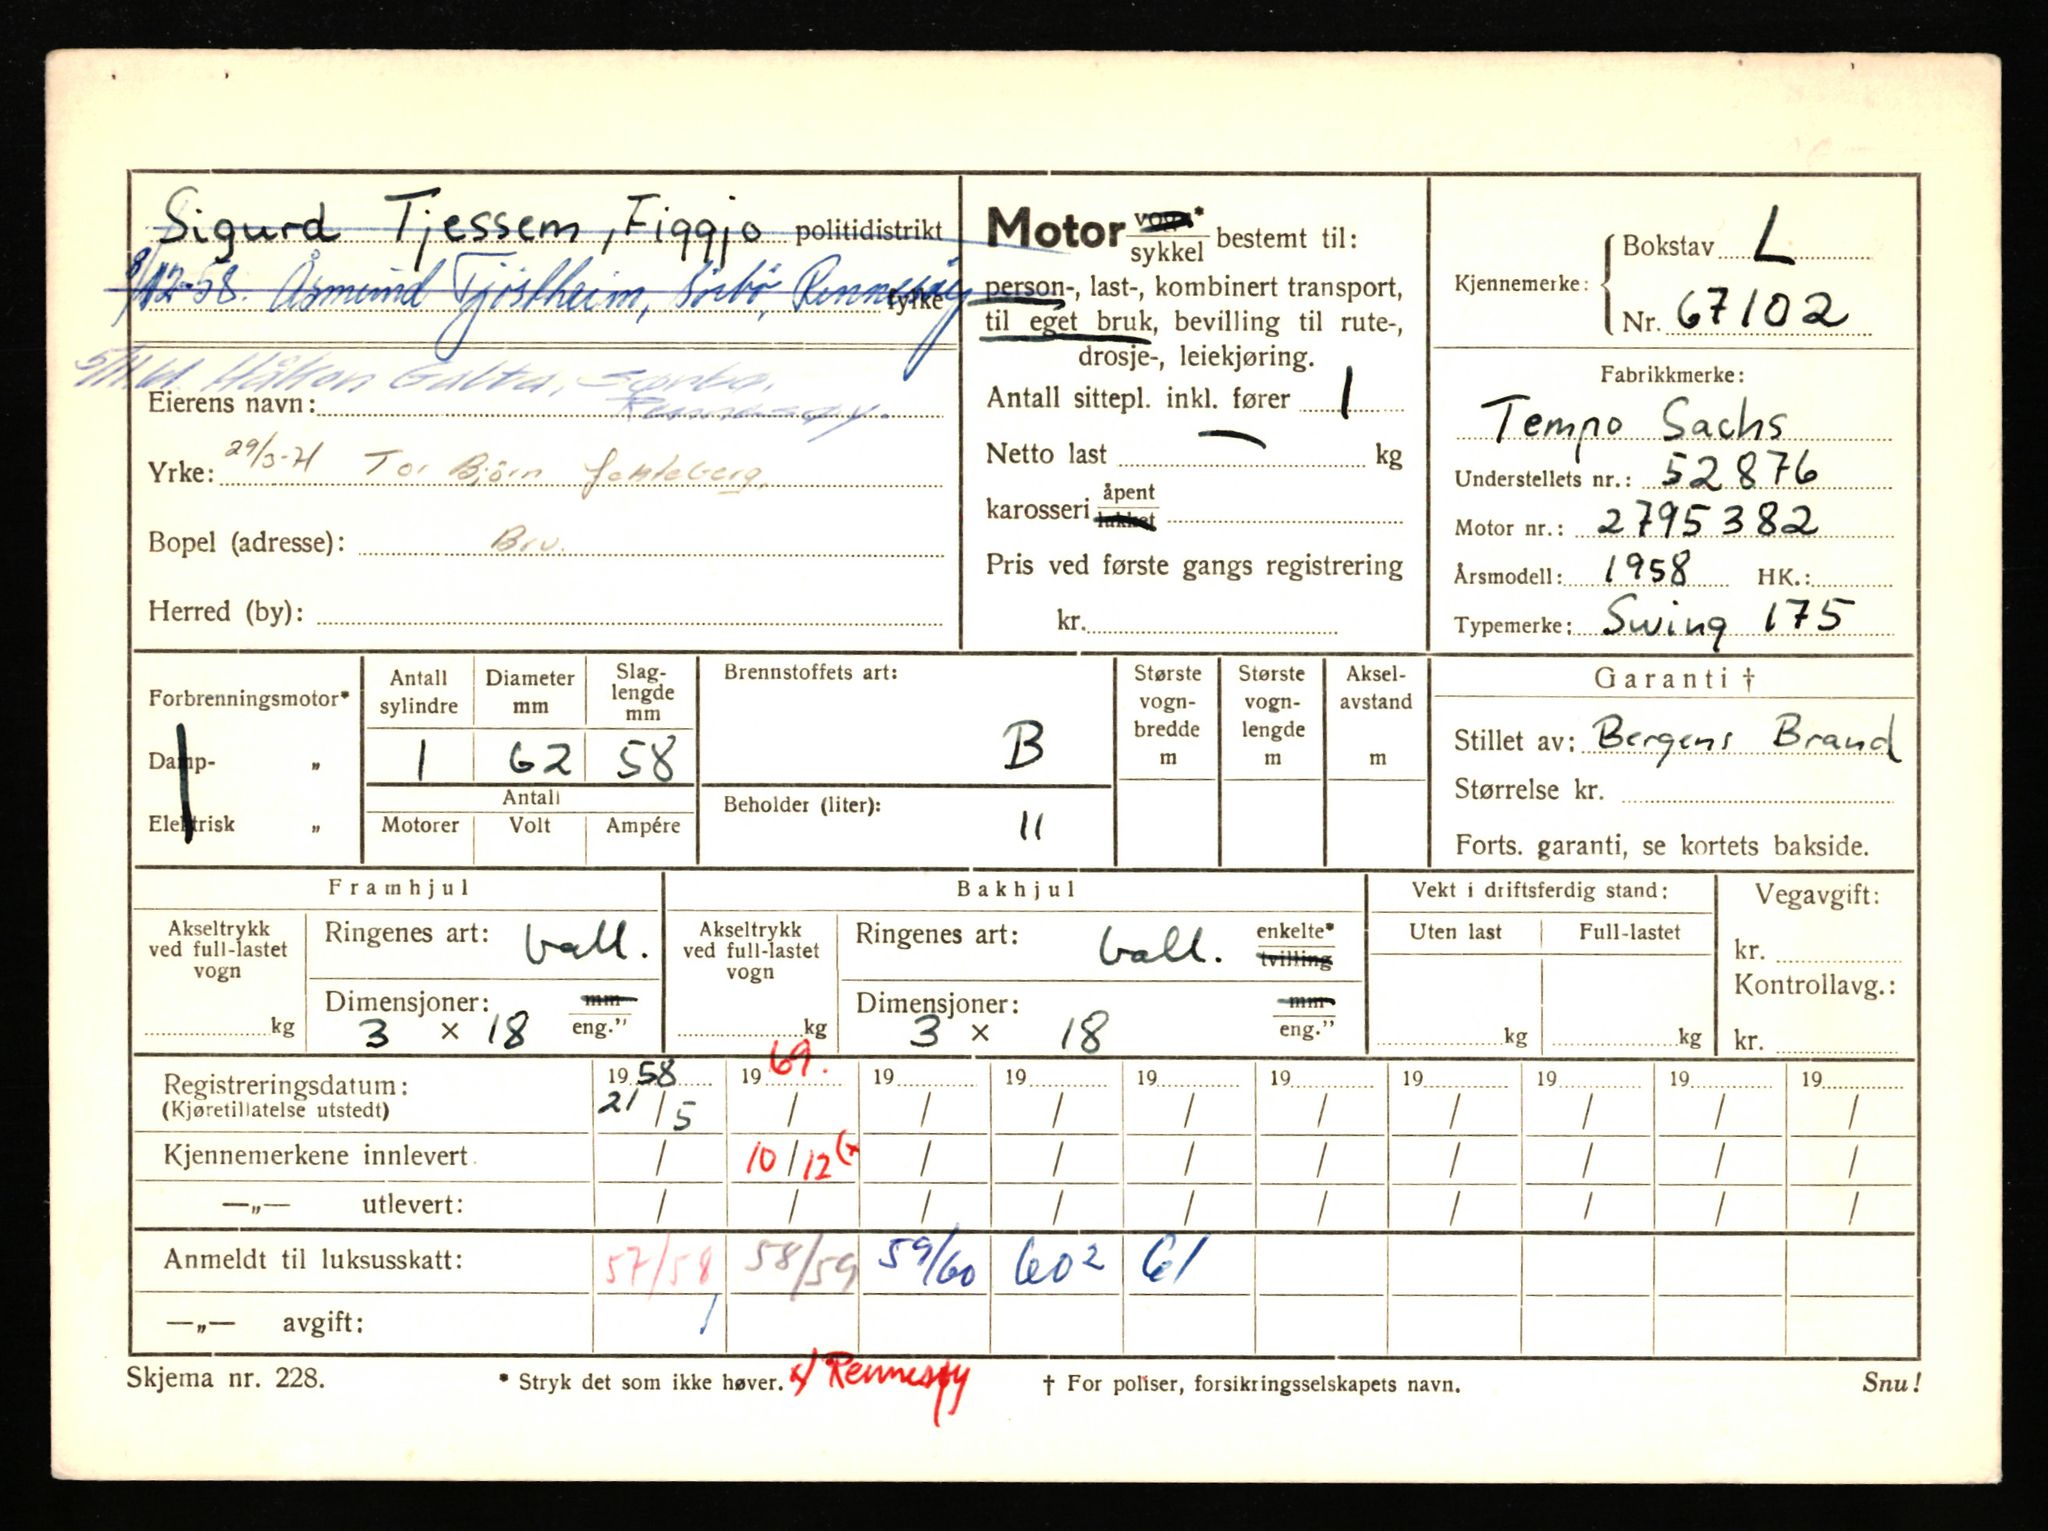 Sigurd Tjessem, Figgjo politidistrikt
8/12-58. Åsmund Tjöstheim, Sörbö, Rennesöy fylke
Håkon Galta, Sørbø,
Eierens navn: Rennesøy.
Yrke: 29/3-71 Tor Björn
Bopel (adresse): Bru.
Herred (by):
Motor vogn* sykkel bestemt til:
person-, last-, kombinert transport,
til eget bruk, bevilling til rute-,
drosje-, leiekjøring.
Antall sittepl. inkl. fører 1
Netto last — kg
karosseri åpent lukket
Pris ved første gangs registrering
kr.
Kjennemerke: Bokstav L
Nr. 67102
Fabrikkmerke:
Tempo Sachs
Understellets nr.: 52876
Motor nr.: 2795382
Årsmodell: 1958 HK.:
Typemerke: Swing 175
Forbrenningsmotor*
Damp- „
Elektrisk „
Antall sylindre 1
Diameter mm 62
Slag-lengde mm 58
Antall
Motorer Volt Ampére
Brennstoffets art: B
Beholder (liter): 11
Største vogn-bredde m
Største vogn-lengde m
Aksel-avstand m
Garanti †
Stillet av: Bergens Brand
Størrelse kr.
Forts. garanti, se kortets bakside.
Framhjul
Akseltrykk ved full-lastet vogn kg
Ringenes art: ball.
Dimensjoner: mm
3 × 18 eng.”
Bakhjul
Akseltrykk ved full-lastet vogn kg
Ringenes art: ball. enkelte* tvilling
Dimensjoner: mm
3 × 18 eng.”
Vekt i driftsferdig stand:
Uten last Full-lastet
kg kg
Vegavgift:
kr.
Kontrollavg.:
kr.
Registreringsdatum: 1958 1969. 19 19 19 19 19 19 19 19
(Kjøretillatelse utstedt) 21/5 / / / / / / / / /
Kjennemerkene innlevert / 10/12 (x / / / / / / / /
—„— utlevert: / / / / / / / / / /
Anmeldt til luksusskatt: 57/58 58/59 59/60 602 61
—„— avgift: /
Skjema nr. 228. * Stryk det som ikke høver. x/ Rennesøy † For poliser, forsikringsselskapets navn. Snu!